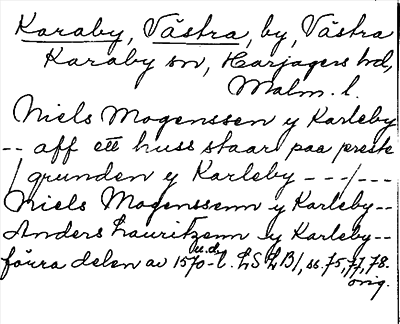 Karaby, Västra, by, Västra
Karaby sn, Harjagers hd,
Malm. l.
Niels Mogenssen y Karleby
-- aff ett huss staar paa preste
/grunden y Karleby ---/---
Niels Mogenssenn y Karleby--
Anders Lauritzenn y Karleby--
förra delen av 1570-t. LSLB1, ss. 75, 77, 78.
orig.